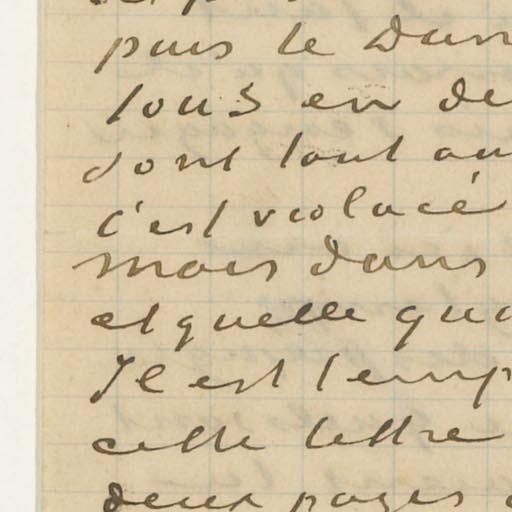 puis le Dan
tous en de
dont tout au
c'est violacé
mais dans
et quelle qu
Il est temp
cette lettre
deux pages